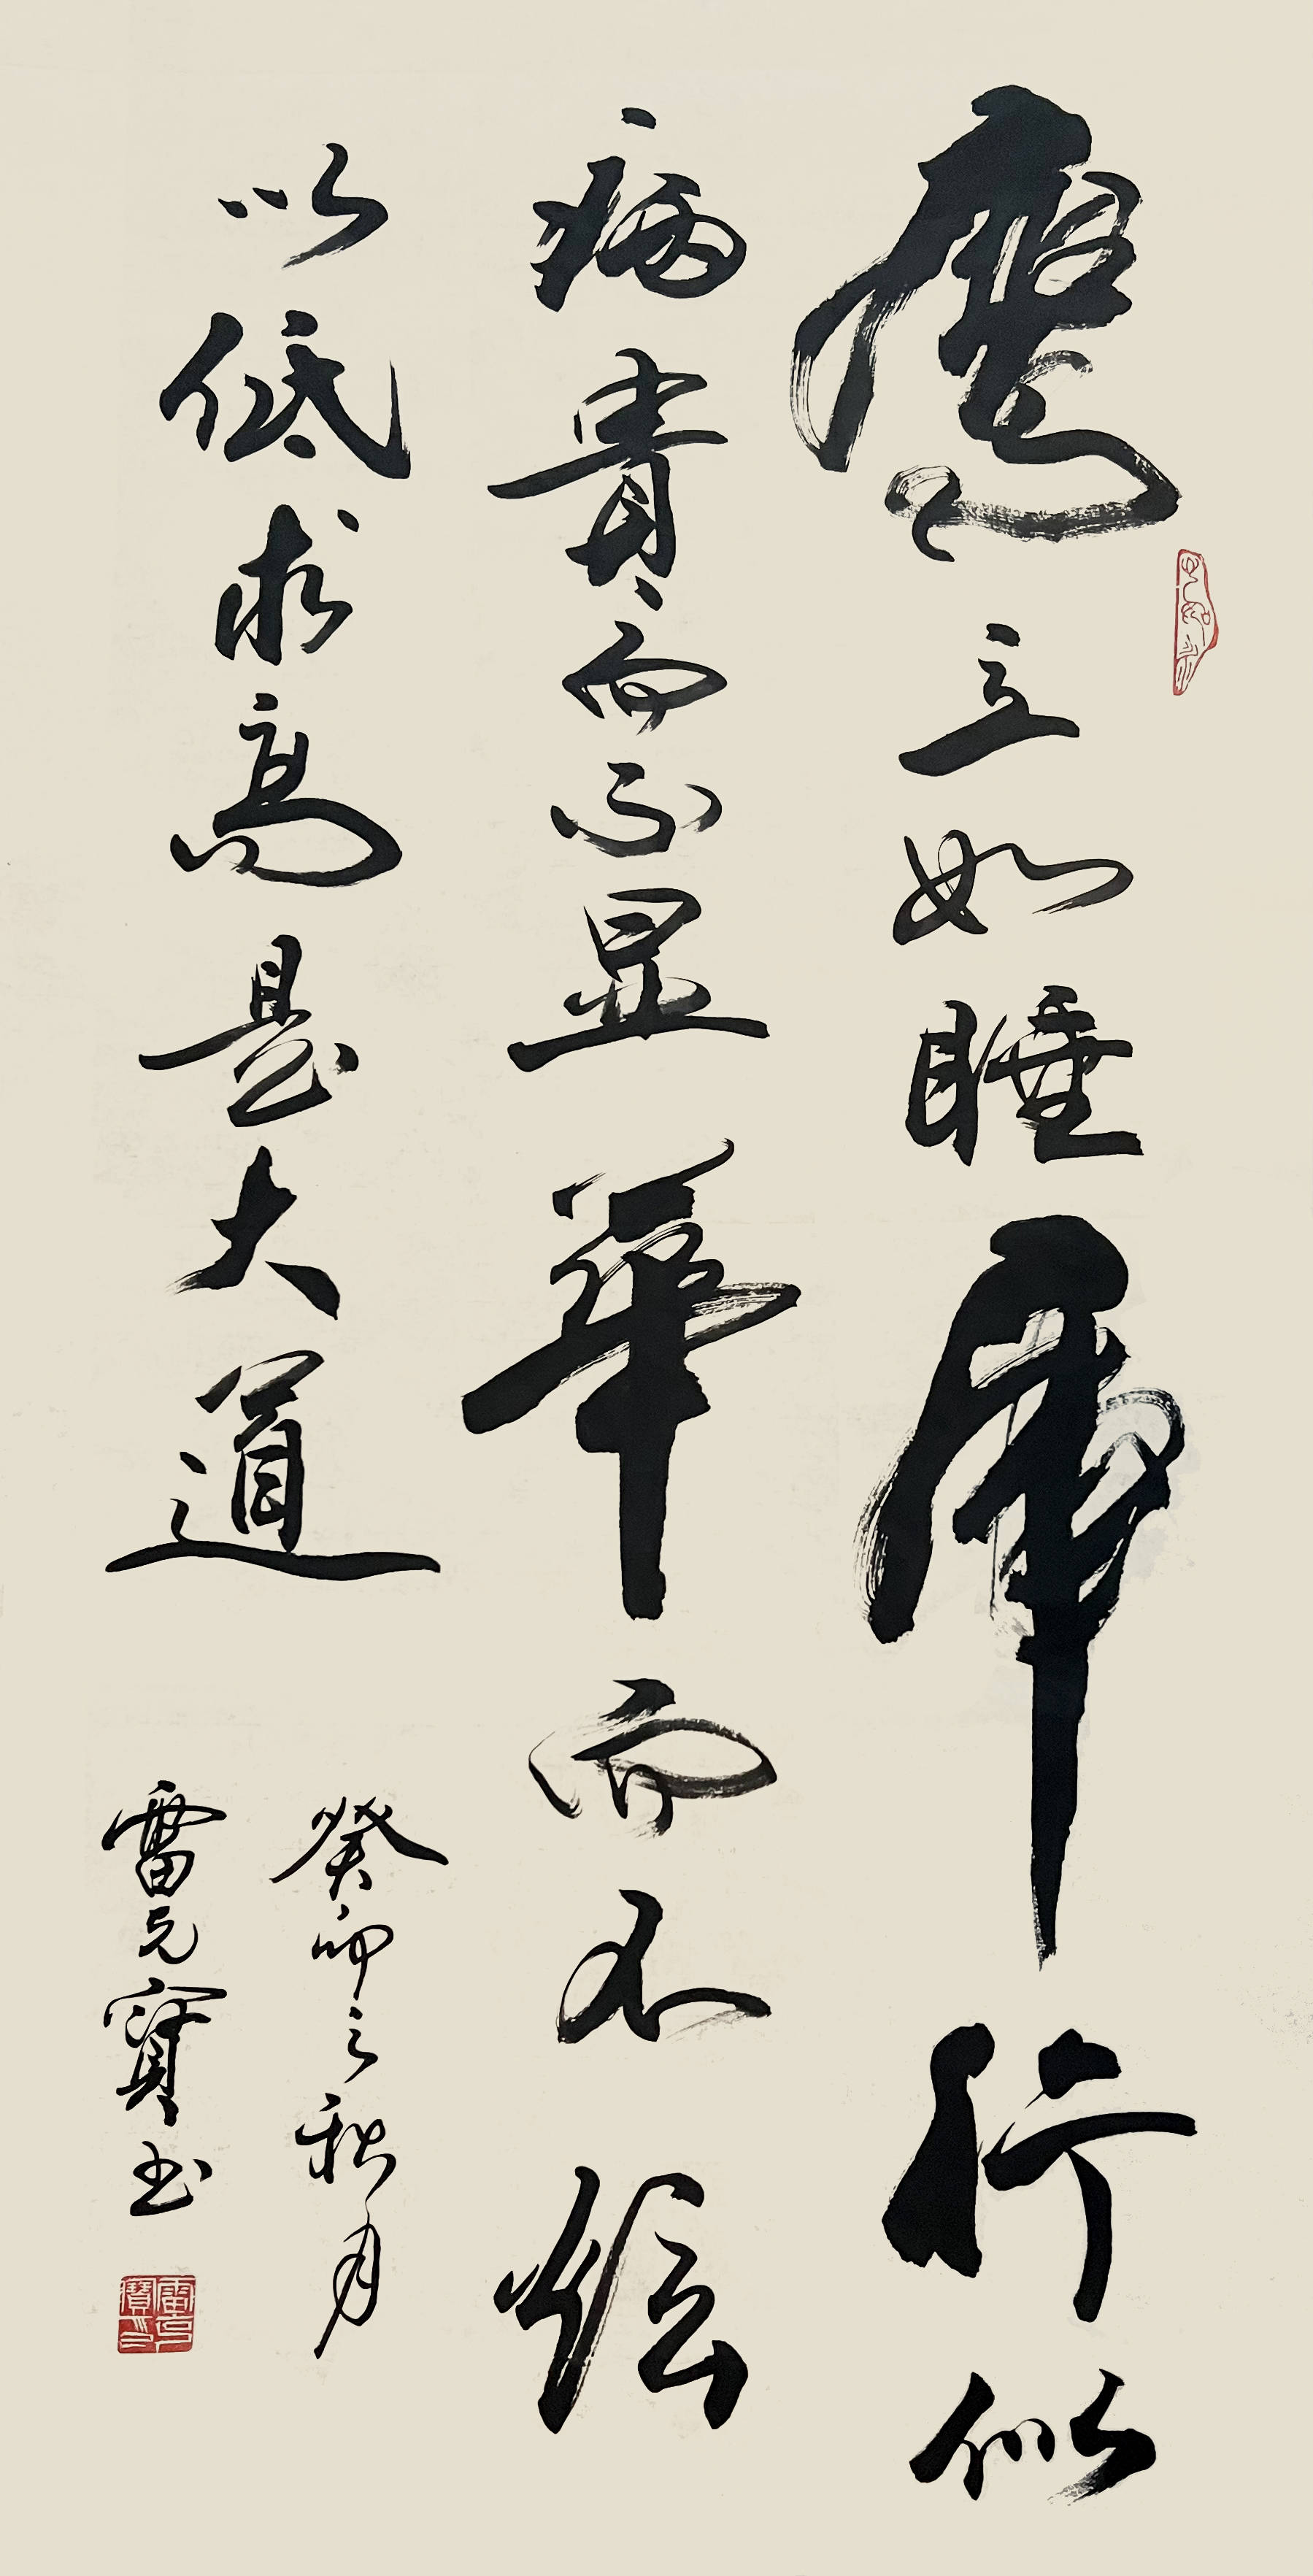 鷹立如睡虎行似
病貴而不显華而不炫
以低求高是大道
癸卯之秋月
雷元寶书